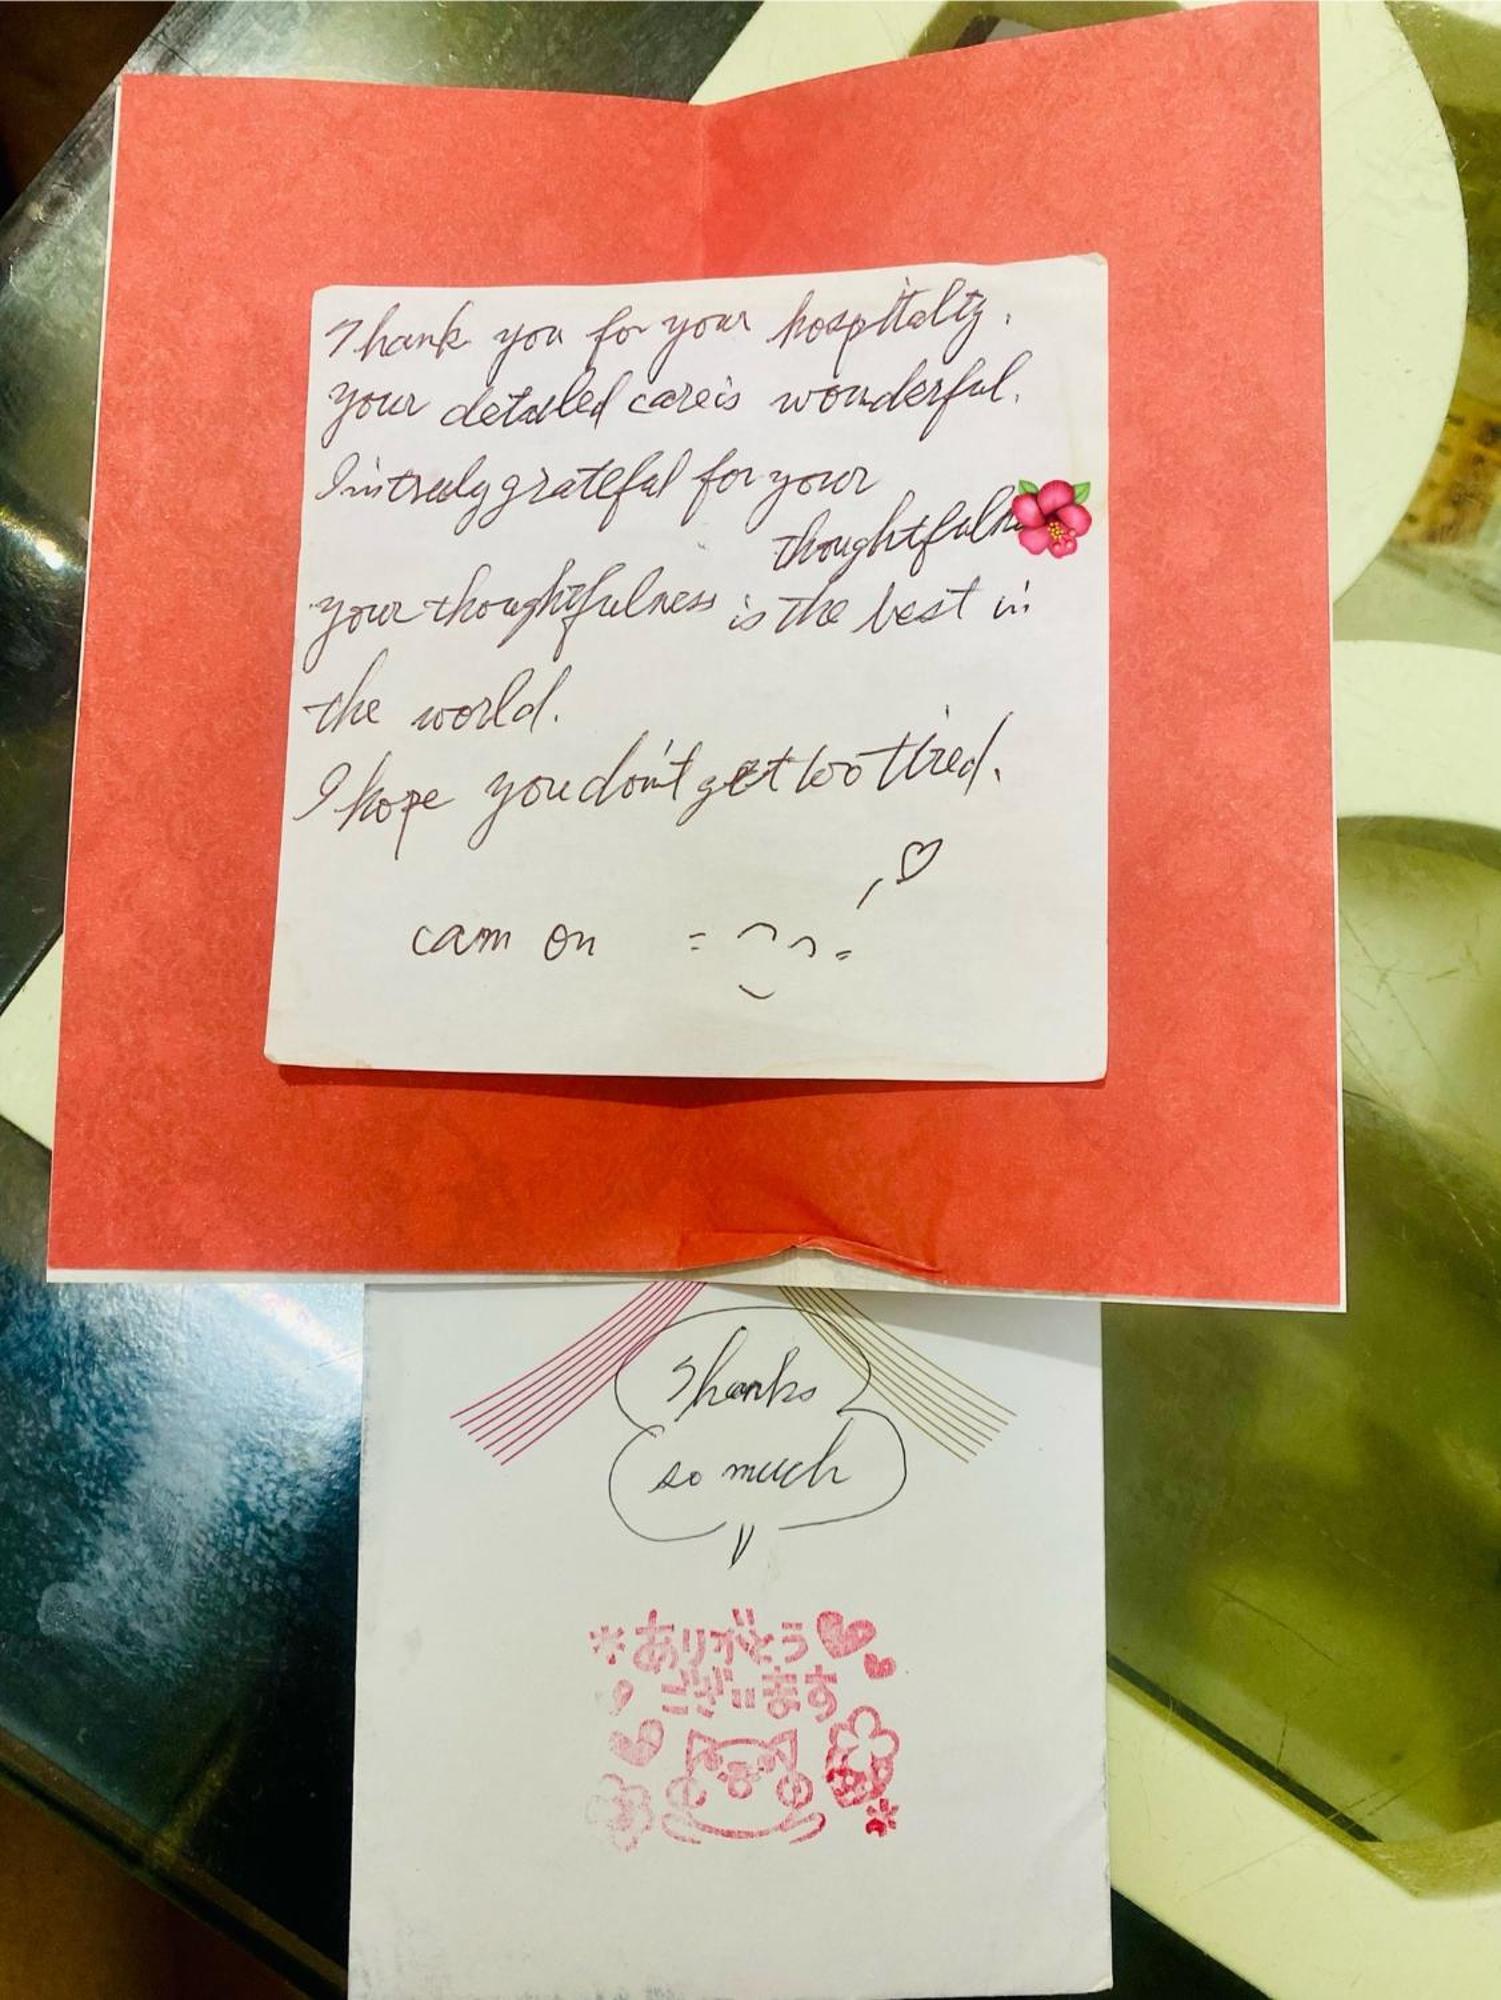 Thank you for your hospitalty.
your detailed care is wonderful.
I'm truly grateful for your
your thoughtfulness is the best in
the world.
I hope you don't get too tired.
cam on
Thanks
so much
ありがとう
ございます